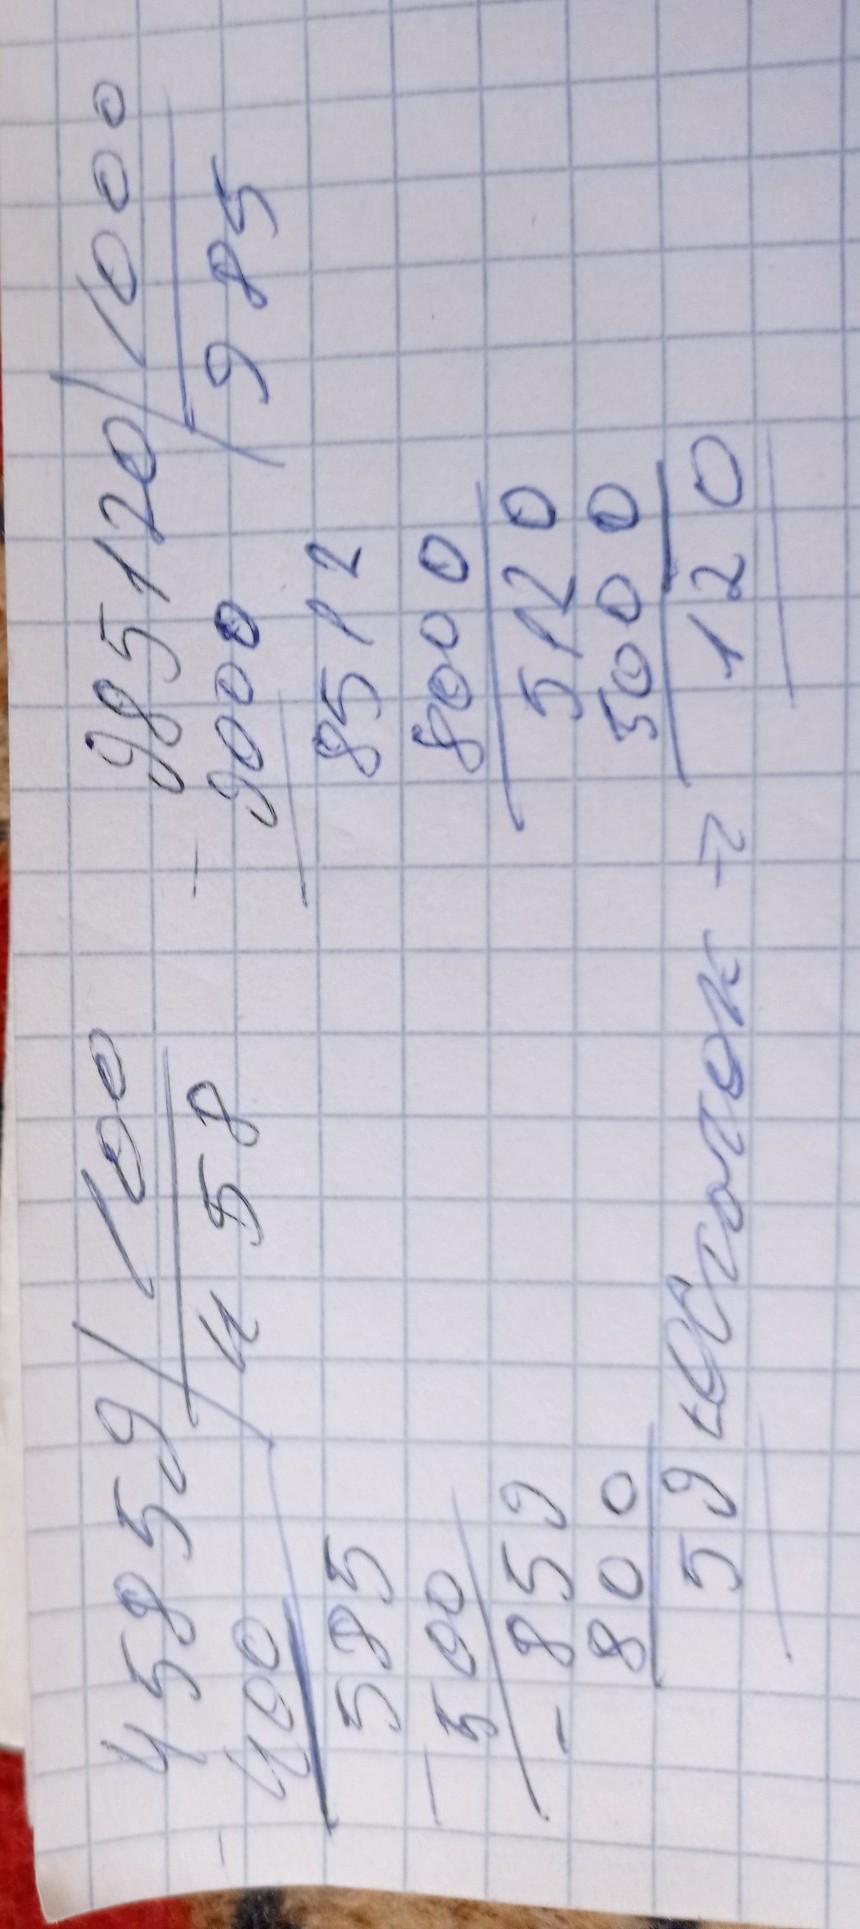 45859 / 100 - 985120 / 1000
- 400 / 458 9000 / 985
585 8512
- 500 8000
- 859 5120
800 5000
59 ← Остаток → 120